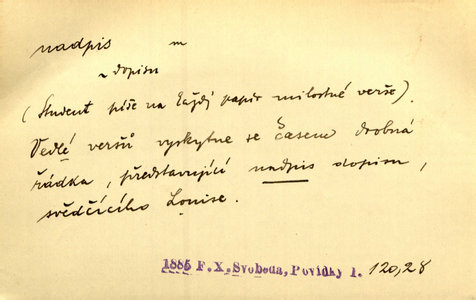 nadpis m
~ dopisu
(Student píše na každý papír milostné verše).
Vedlé veršů vyskytne se časem drobná
řádka, představující nadpis dopisu,
svědčícího Louise.
1885 F. X. Svoboda, Povídky 1. 120,28